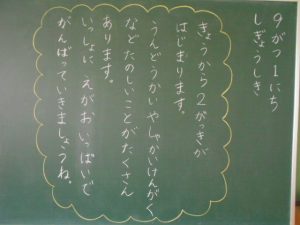 ９がつ１にち
しぎょうしき
きょうから２がっきが
はじまります。
うんどうかいやしゃかいけんがく
などたのしいことがたくさん
あります。
いっしょに えがおいっぱいで
がんばっていきましょうね。